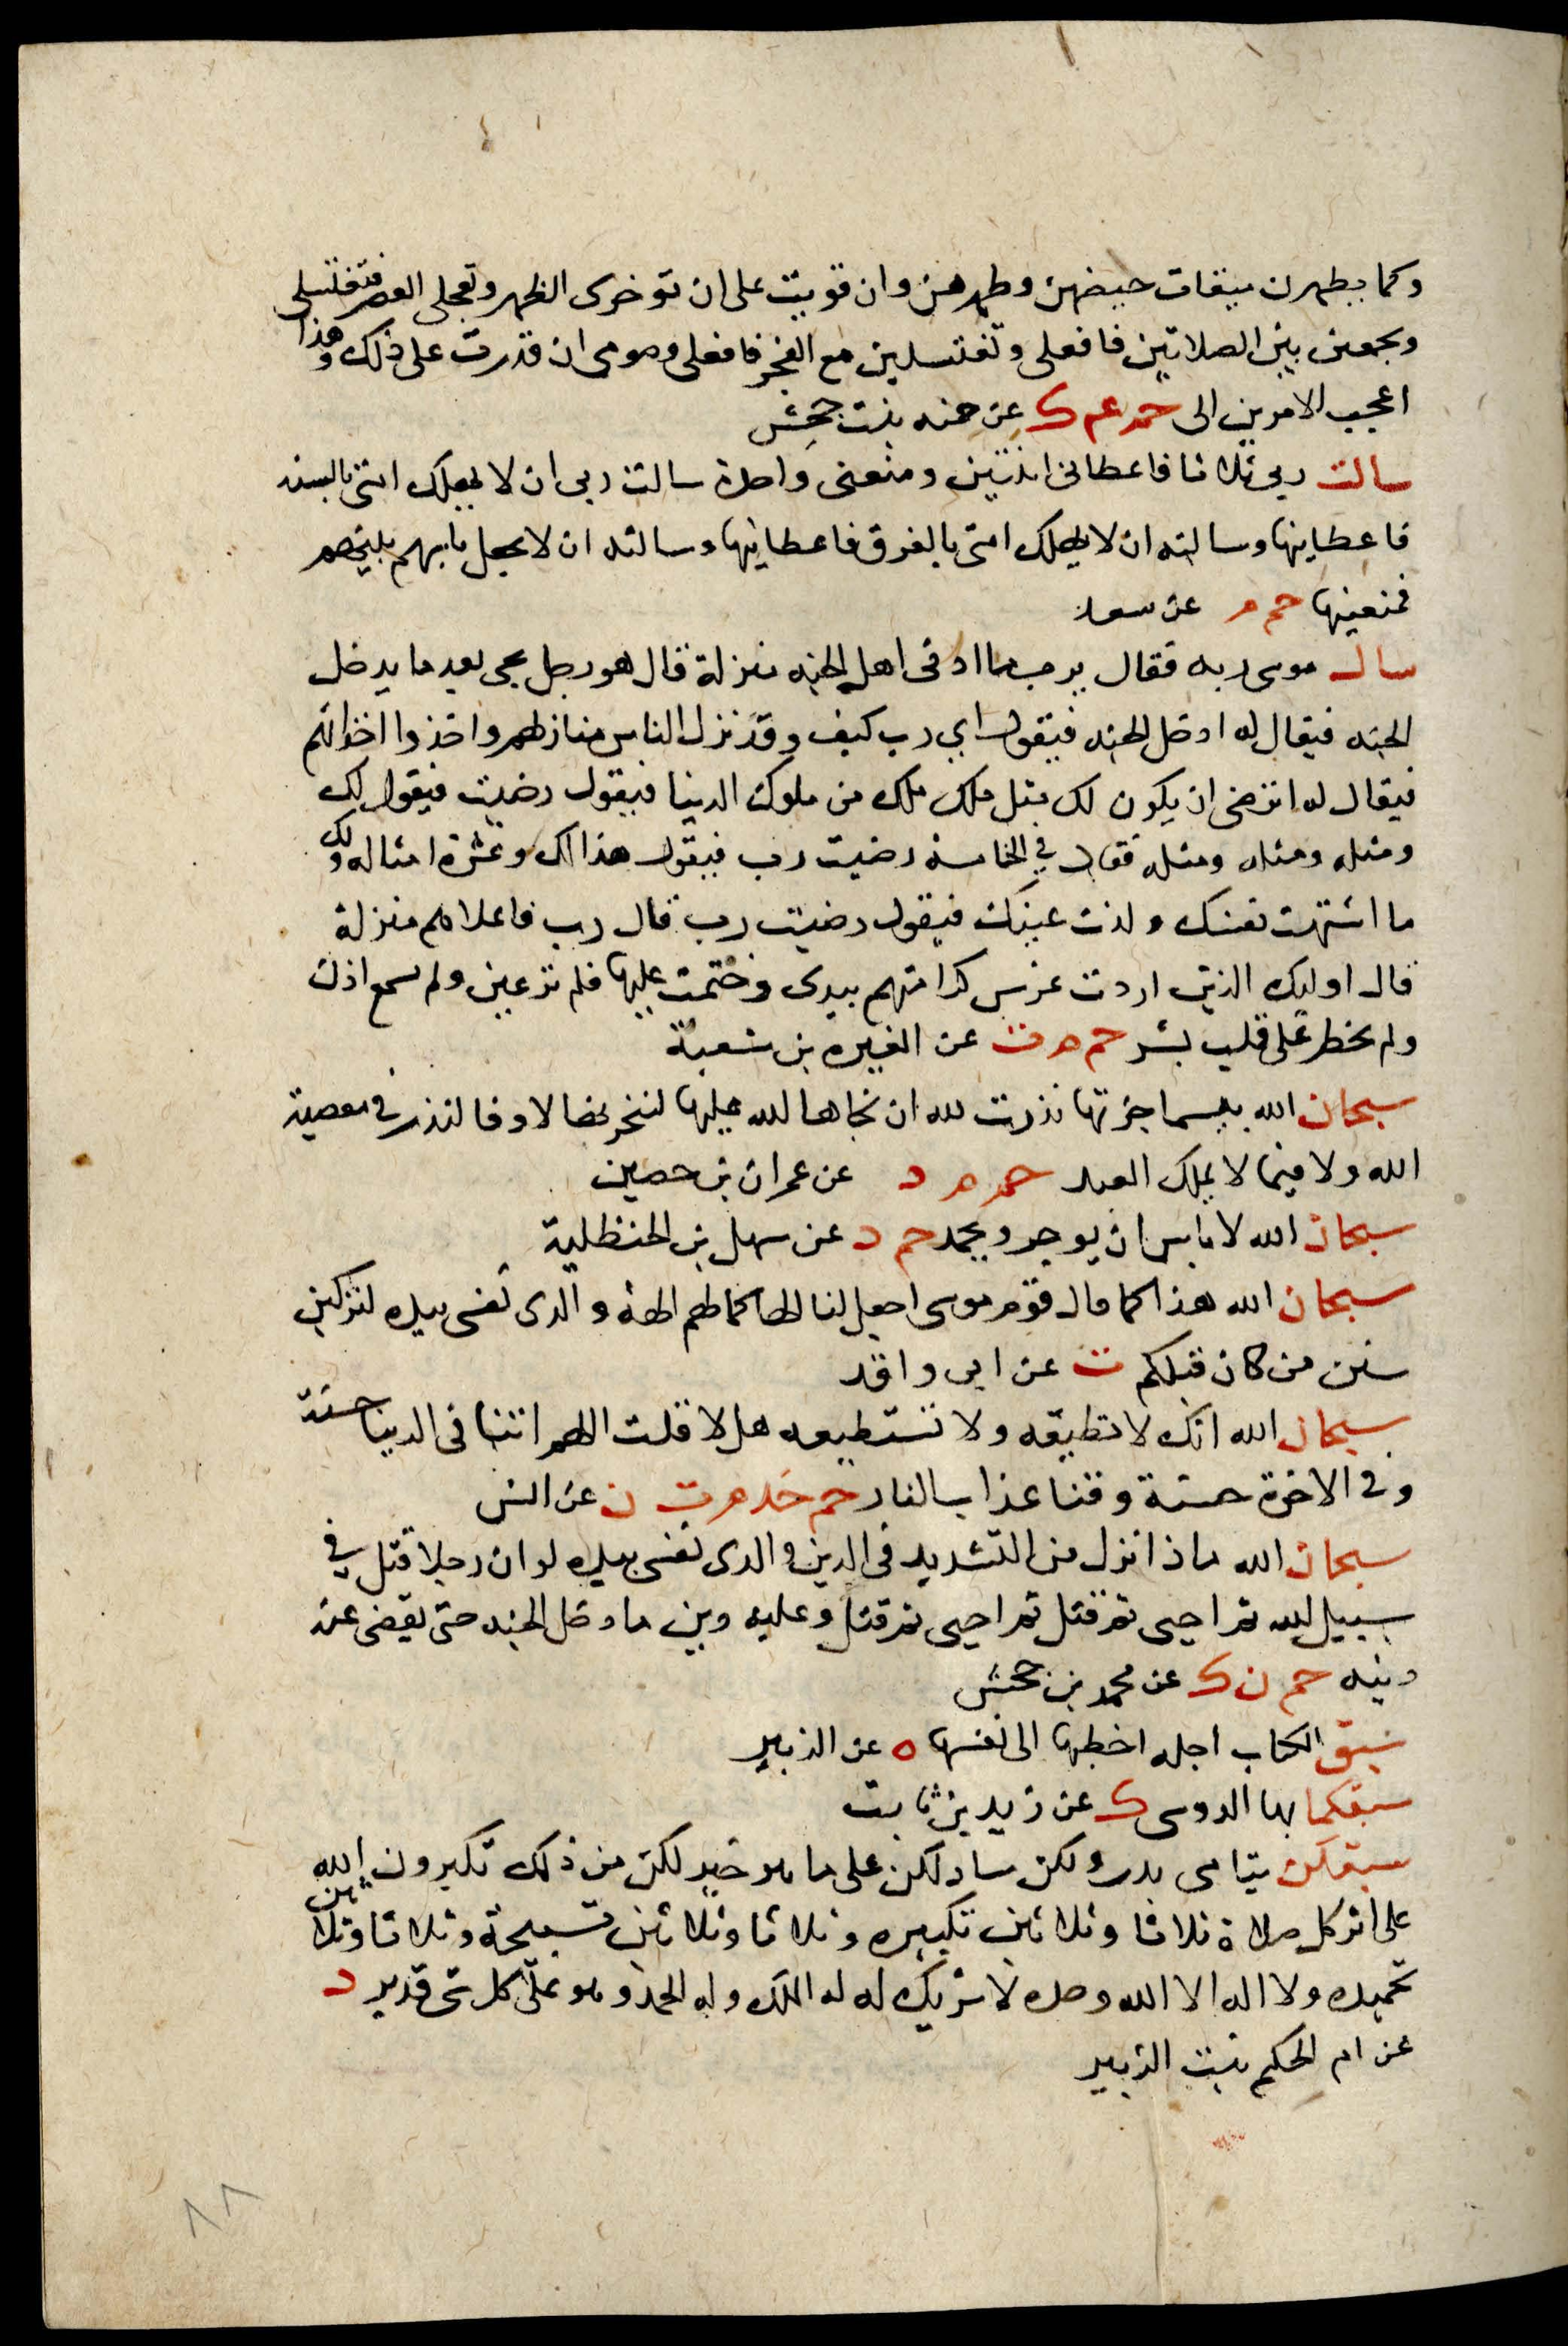 وكما يطهرن ميقات حيضهن وطهرهن وان قويت على ان توخرى الظهر وتعجلى العصر فتغتسلى
وتجمعين بين الصلاتين فافعلى وتغتسلين مع الفجر فافعلى وصومى ان قدرت على ذلك وهذا
اعجب الامرين الى حم ع ك عن حمنه بنت جحش
سالت ربى ثلاثا فاعطانى اثنتين ومنعنى واحدة سالت ربى ان لا يهلك امتى بالسنه
فاعطانيها وسالته ان لا يهلك امتى بالغرق فاعطانيها وسالته ان لا يجعل باسهم بينهم
فمنعنيها حم م عن سعد
سال موسى ربه فقال يرب ما ادنى اهل الجنه منزلة قال هو رجل يجى بعد ما يدخل
الجنه فيقال له ادخل الجنه فيقول اي رب كيف وقد نزل الناس منازلهم واخذوا اخذاتهم
فيقال له اترضى ان يكون لك مثل ملك ملك من ملوك الدنيا فيقول رضيت فيقول لك
ومثله ومثله ومثله فقال في الخامسه رضيت رب فيقول هذا لك وعشرة امثاله ولك
ما اشتهت نفسك ولذت عينك فيقول رضيت رب قال رب فاعلاهم منزلة
قال اوليك الذين اردت غرس كرامتهم بيدى وختمت عليها فلم تر عين ولم تسمع اذن
ولم يخطر على قلب بشر حم م ت عن المغيره بن شعبة
سبحان الله بيسما جزتها نذرت لله ان نجاها الله عليها لتنحرنها لا وفا لنذر في معصية
الله ولا فيما لا يملك العبد حم م د عن عمران بن حصين
سبحان الله لا باس ان يوجر ويحمد حم د عن سهل بن الحنظلية
سبحان الله هذا كما قال قوم موسى اجعل لنا الها كما لهم الهة والذى نفسى بيده لتركبن
سنن من كان قبلكم ت عن ابى واقد
سبحان الله انك لا تطيقه ولا تستطيعه هلا قلت اللهم اتنا فى الدنيا حسنة
وفى الاخرة حسنة وقنا عذاب النار حم خد م ت ن عن انس
سبحان الله ماذا نزل من التشديد فى الدين والذى نفسى بيده لو ان رجلا قتل في
سبيل الله ثم احيى ثم قتل ثم احيى ثم قتل وعليه دين ما دخل الجنه حتى يقضى عنه
دينه حم ن ك عن محمد بن جحش
سبق الكتاب اجله اخطبها الى نفسها ه عن الزبير
سبقكما بها الدوسى ك عن زيد بن ثابت
سبقكن يتامى بدر ولكن سادلكن على ما هو خير لكن من ذلك تكبرون الله
على اثر كل صلاة ثلاثا وثلاثين تكبيره وثلاثا وثلاثين تسبيحة وثلاثا وثلاثين
تحميده ولا اله الا الله وحده لا شريك له له الملك وله الحمد وهو على كل شى قدير د
عن ام الحكم بنت الزبير
٨٨